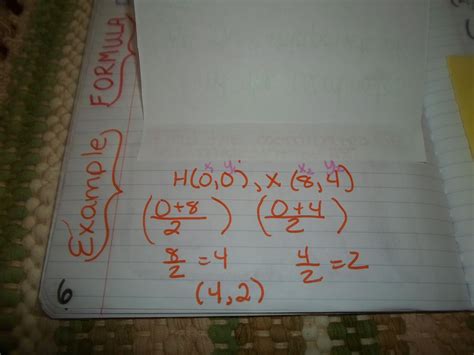 FORMULA
Example
x₁ y₁ x₂ y₂
H(0,0), X (8,4)
(0+8/2) (0+4/2)
8/2 = 4 4/2 = 2
(4,2)
6.